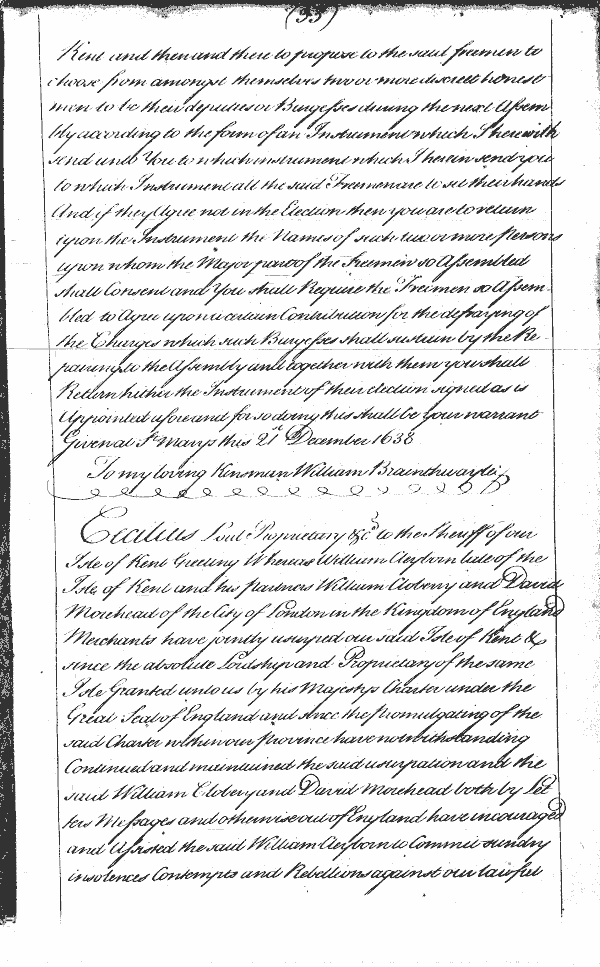 (33)
Kent and then and there to propose to the said freemen to
choose from amongst themselves two or more discreet honest
men to be their deputies or Burgesses during the next Assem
bly according to the form of an Instrument which I herewith
send unto You to which instrument which I herein send you
to which Instrument all the said Freemen are to set their hands
And if they Agree not in the Election then you are to return
upon the Instrument the Names of such two or more Persons
upon whom the Major part of the Freemen so Assembled
shall Consent and You shall Require the Freemen so Assem-
bled to Agree upon a certain Contribution for the defraying of
the Charges which such Burgesses shall sustain by the Re-
pairing to the Assembly and together with them you shall
Return hither the Instrument of their election signed as is
Appointed afore and for so doing this shall be your warrant
Given at St Marys this 21st December 1638
To my loving Kinsman William Braenthwayte
Cecilius Lord Proprietary &c to the Sheriff of our
Isle of Kent Greeting Whereas William Cleyborn late of the
Isle of Kent and his partners William Cloberry and David
Morehead of the City of London in the Kingdom of England
Merchants have jointly usurped our said Isle of Kent &
since the absolute Lordship and Proprietary of the same
Isle Granted unto us by his Majestys Charter under the
Great Seal of England and since the promulgating of the
said Charter within our province have notwithstanding
Continued and maintained the said usurpation and the
said William Clobery and David Morehead both by Let
ters Messages and otherwise out of England have incouraged
and Assisted the said William Cleyborn to Commit sundry
insolences Contempts and Rebellions against our lawful